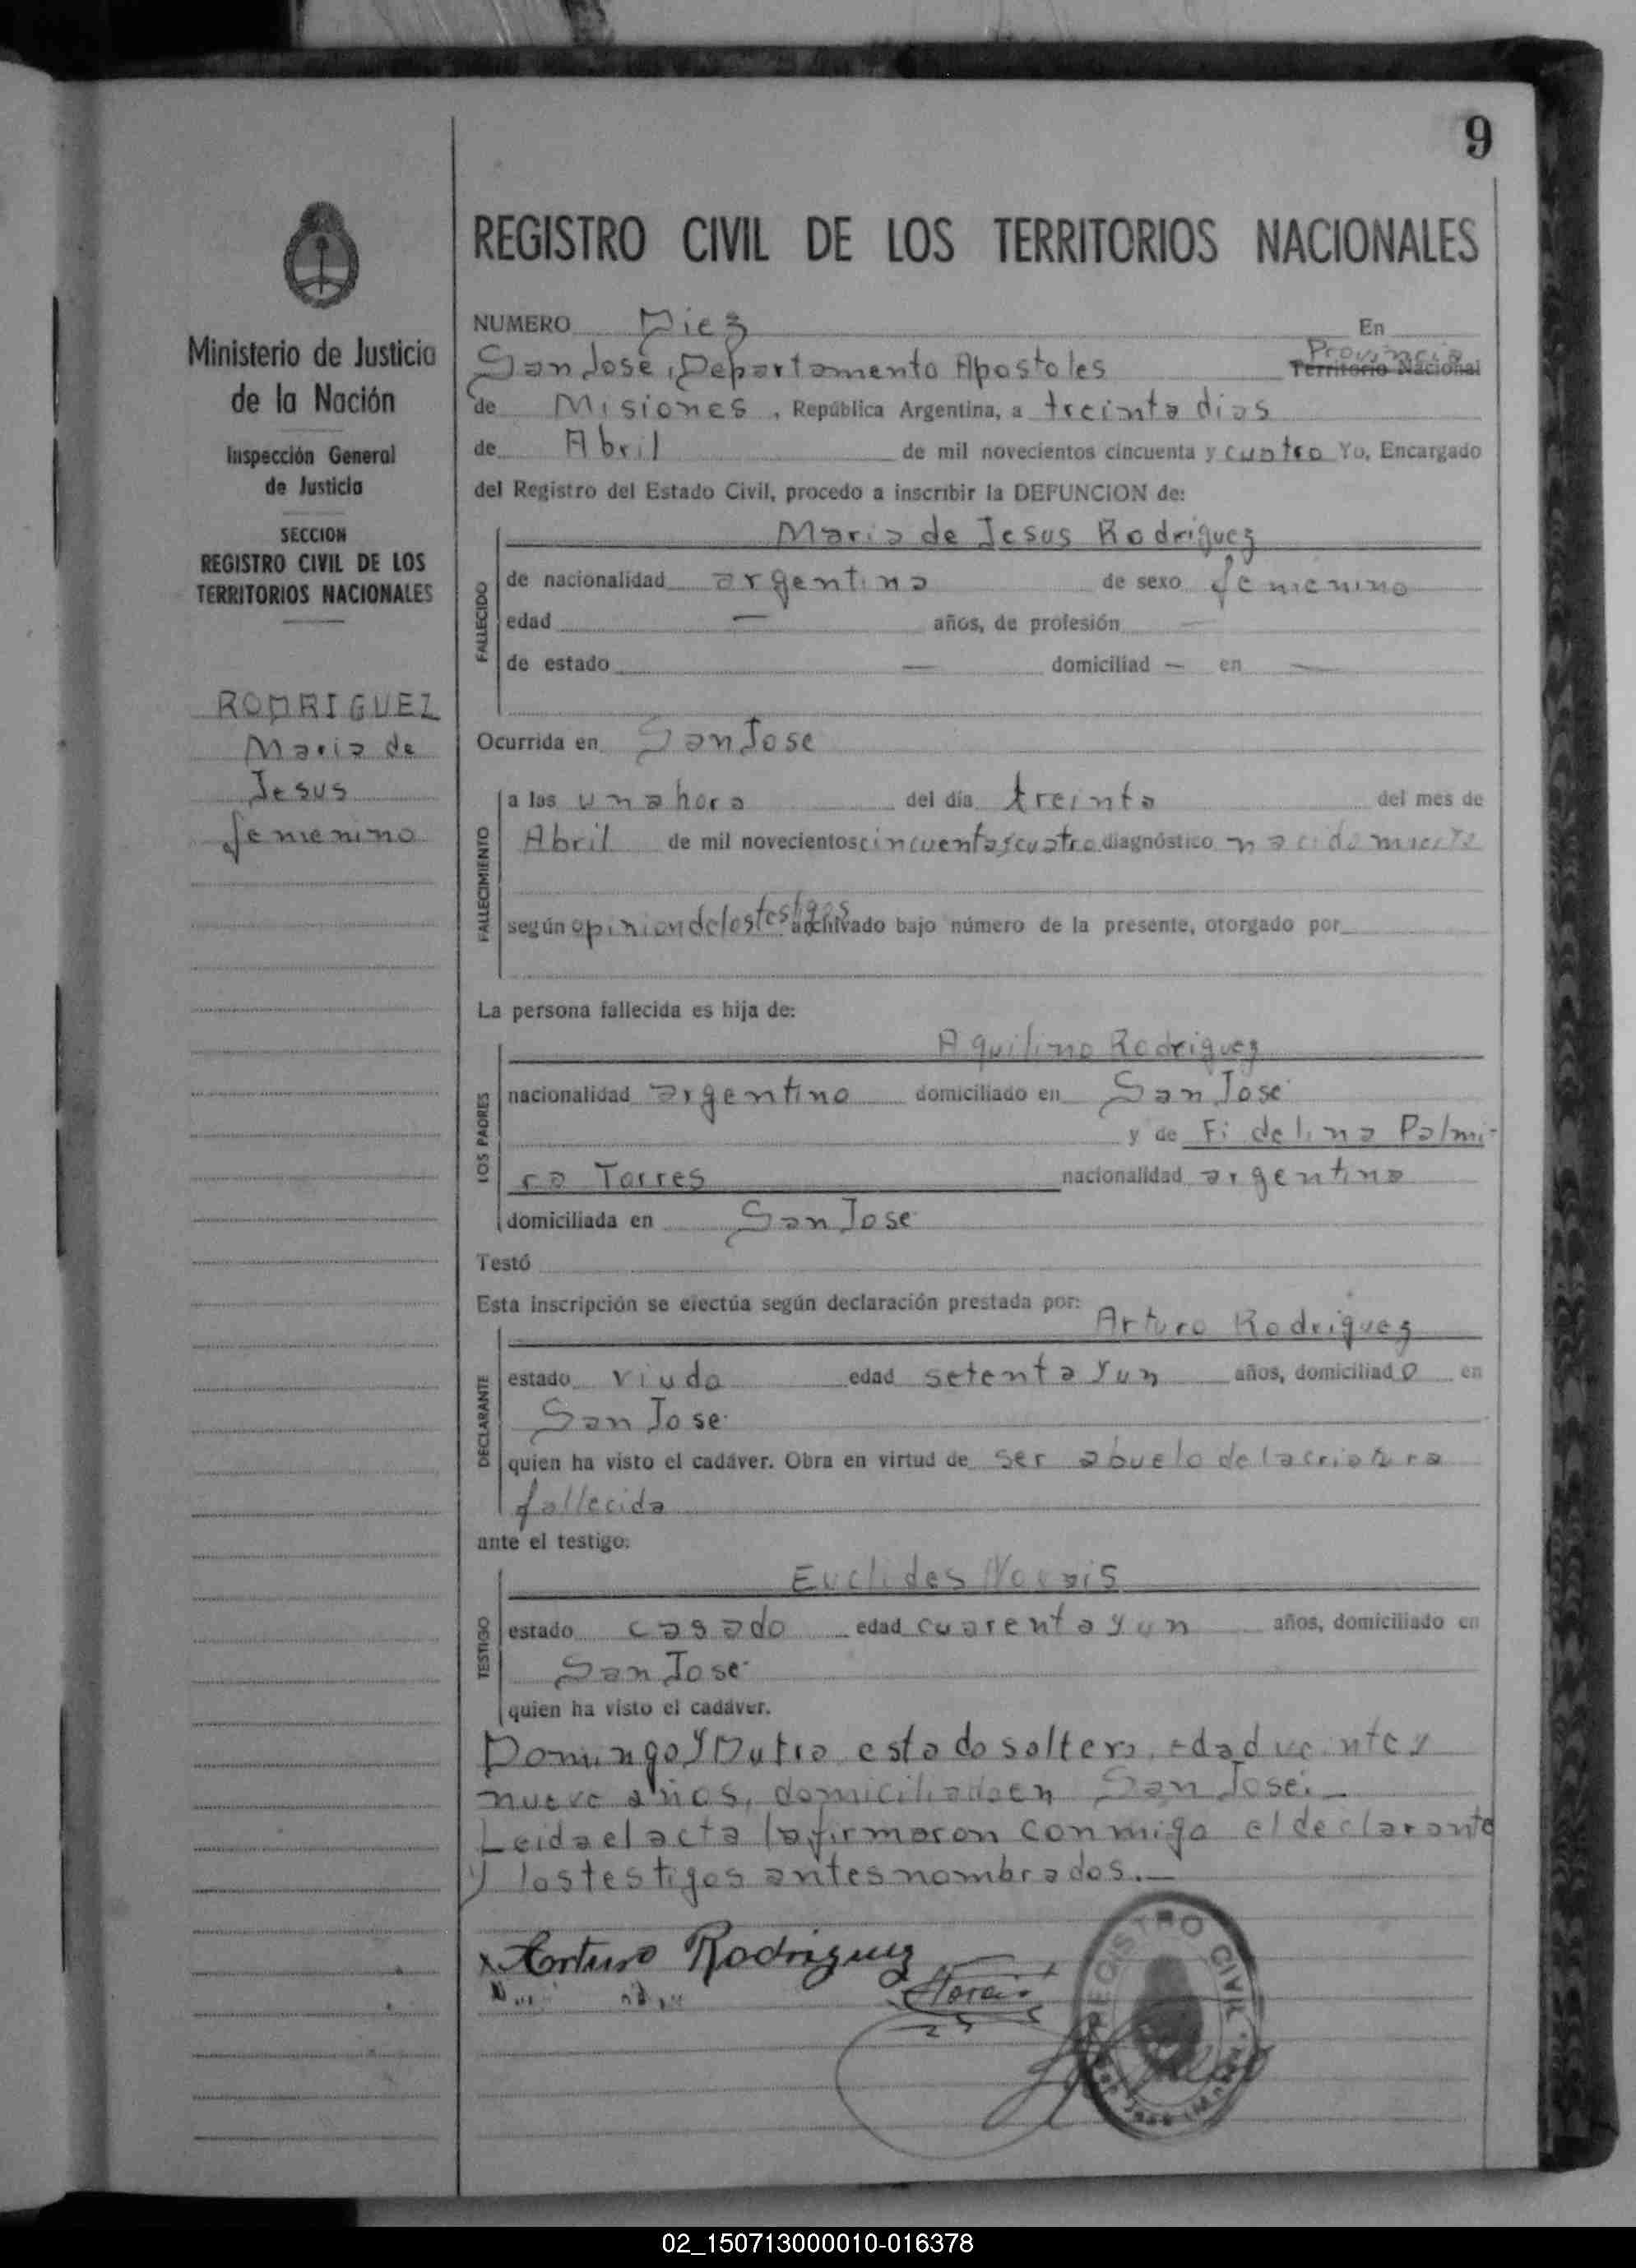 9
REGISTRO CIVIL DE LOS TERRITORIOS NACIONALES
Ministerio de Justicia
de la Nación
Inspección General
de Justicia
SECCION
REGISTRO CIVIL DE LOS
TERRITORIOS NACIONALES
RODRIGUEZ
Maria de
Jesus
femenino
NUMERO Diez En
San José, Departamento Apostoles Provincia Territorio Nacional
de Misiones, República Argentina, a treinta dias
de Abril de mil novecientos cincuenta y cuatro Yo, Encargado
del Registro del Estado Civil, procedo a inscribir la DEFUNCION de:
Maria de Jesus Rodriguez
FALLECIDO
de nacionalidad argentina de sexo femenino
edad — años, de profesión —
de estado — domiciliad — en —
Ocurrida en San Jose
FALLECIMIENTO
a las una hora del día treinta del mes de
Abril de mil novecientos cincuenta y cuatro diagnóstico nacido muerto
según opinion de los testigos archivado bajo número de la presente, otorgado por
La persona fallecida es hija de:
LOS PADRES
Aquilino Rodriguez
nacionalidad argentino domiciliado en San Jose
y de Fidelina Palmi-
ra Torres nacionalidad argentina
domiciliada en San Jose
Testó
Esta inscripción se efectúa según declaración prestada por:
DECLARANTE
Arturo Rodriguez
estado viudo edad setenta y un años, domiciliado en
San Jose
quien ha visto el cadáver. Obra en virtud de ser abuelo de la criatura
fallecida
ante el testigo:
TESTIGO
Euclides Morais
estado casado edad cuarenta y un años, domiciliado en
San Jose
quien ha visto el cadáver.
Domingo Dutra estado soltero, edad veinte y
nueve años, domiciliado en San José.—
Leida el acta la firmaron conmigo el declarante
y los testigos antes nombrados.—
Arturo Rodriguez
Morais
REGISTRO CIVIL
02_150713000010-016378